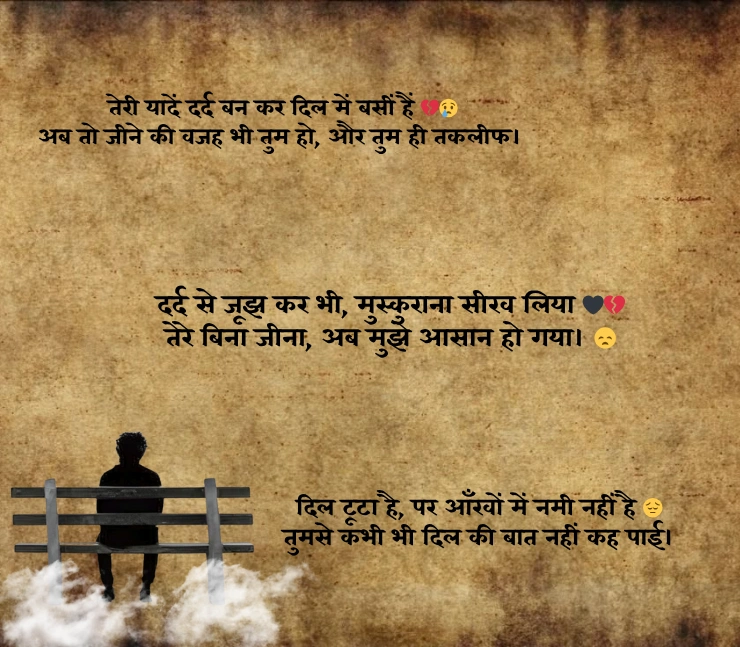 तेरी यादें दर्द बन कर दिल में बसीं हैं 💔😢
अब तो जीने की वजह भी तुम हो, और तुम ही तकलीफ।
दर्द से जूझ कर भी, मुस्कुराना सीख लिया 🖤💔
तेरे बिना जीना, अब मुझे आसान हो गया। 😞
दिल टूटा है, पर आँखों में नमी नहीं है 😔
तुमसे कभी भी दिल की बात नहीं कह पाई।